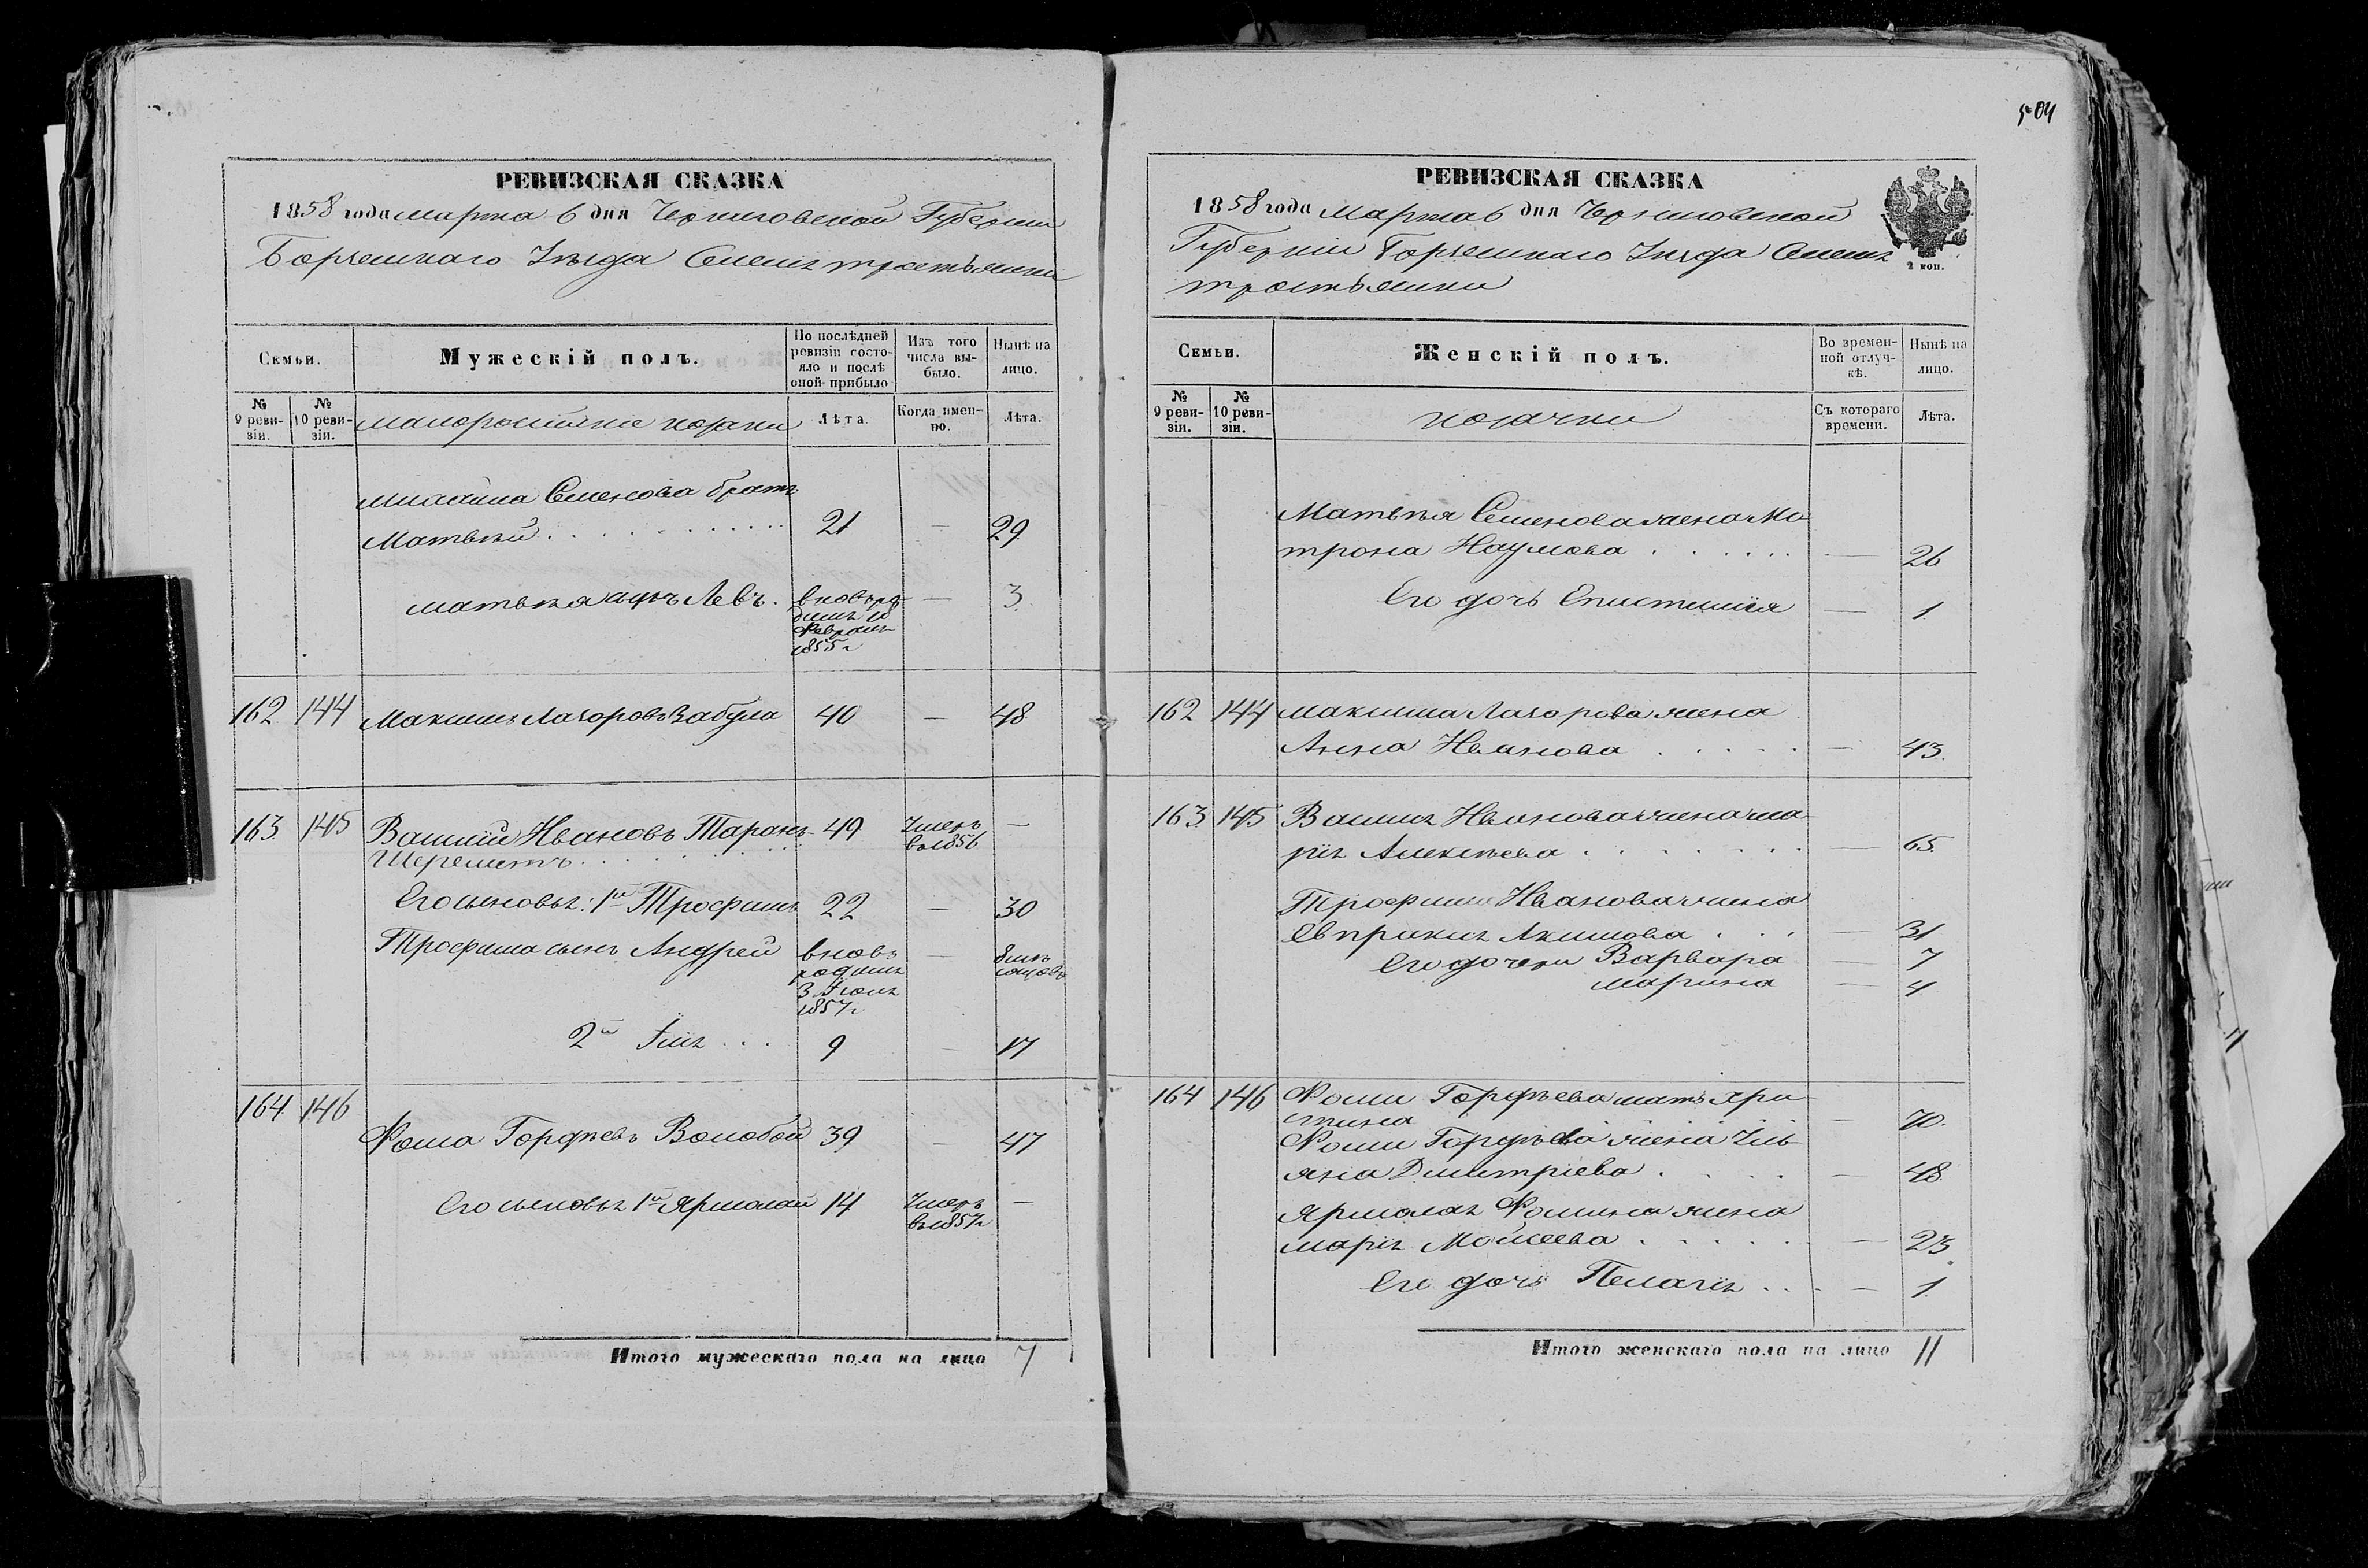 504
РЕВИЗСКАЯ СКАЗКА
1858 года марта 6 дня Черниговской Губернии
Борзенскаго Уѣзда Селенія тростьянки
Семьи.
Мужескій полъ.
По послѣдней ревизіи состояло и послѣ оной прибыло
Изъ того числа выбыло.
Нынѣ на лицо.
№ 9 ревизіи.
№ 10 ревизіи.
малороссійскіе козаки
Лѣта.
Когда именно.
Лѣта.
михаила Семенова братъ
Матвѣй 21 — 29
матвѣя сынъ Левъ. вновь ро- — 3
дился
февраля
1855 г
162 144 Максимъ Лазоровъ Забула 40 — 48
163 145 Василий Ивановъ Таранъ 49 Умеръ —
Шереметъ въ 1856
Его сыновья: 1й Трофимъ 22 — 30
Трофима сынъ Андрей вновь — 8 мѣ-
родился сяцовъ
3 Июля
1857 г
2й Илія 9 — 17
164 146
Фома Гордѣевъ Волобой 39 — 47
Его сыновья 1й Ярмолай 14 Умеръ —
въ 1857 г
Итого мужескаго пола на лицо 7
РЕВИЗСКАЯ СКАЗКА
1858 года Марта 6 дня Черниговской
Губерніи Борзенскаго Уѣзда Селенія
тростьянки
2 коп.
Семьи.
Женскій полъ.
Во временной отлучкѣ.
Нынѣ на лицо.
№ 9 ревизіи.
№ 10 ревизіи.
козачки
Съ котораго времени.
Лѣта.
Матвѣя Семенова жена Ма-
трона Наумова — 26
Его дочь Епистимия — 1
162 144 максима Лазорова жена
Анна Иванова — 43
163 145 Василя Иванова жена ма-
рія Алексѣева — 65
Трофима Иванова жена
Евпракия Акимова — 31
Его дочери Варвара — 7
марина — 4
164 146 Фомы Гордѣева мать Хри-
стина — 70
Фомы Гордѣева жена Улья-
яна Дмитріева — 48
Ярмолая Фомина жена
марія Мойсеева — 23
Его дочь Пелагія — 1
Итого женскаго пола на лицо 11